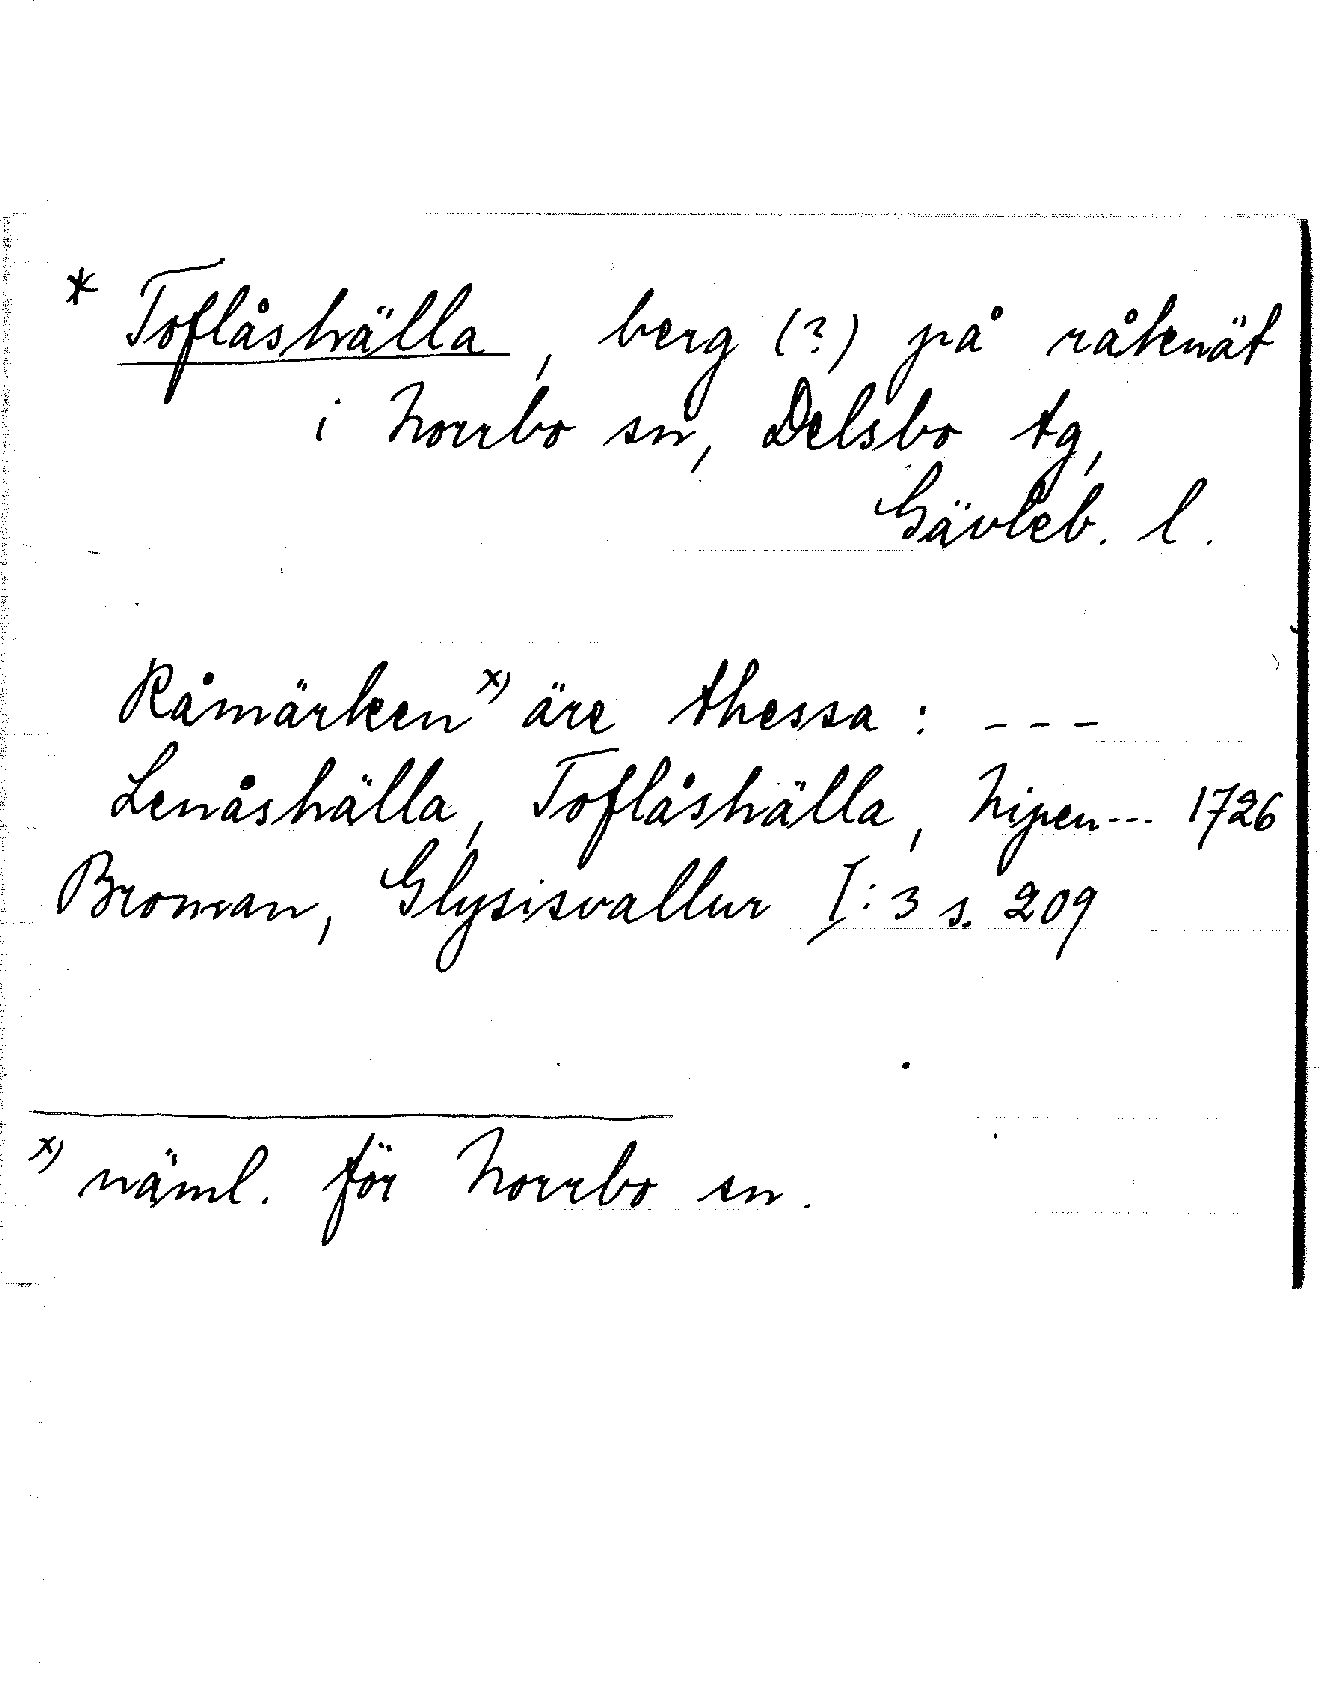 * Toflåshälla, berg (?) på råknät
i Norrbo sn, Delsbo tg,
Gävleb. l.
Råmärken x) äre thessa : ---
Lenåshälla, Toflåshälla, Nipen --- 1726
Broman, Glysisvallur I:3 s. 209
x) näml. för Norrbo sn.